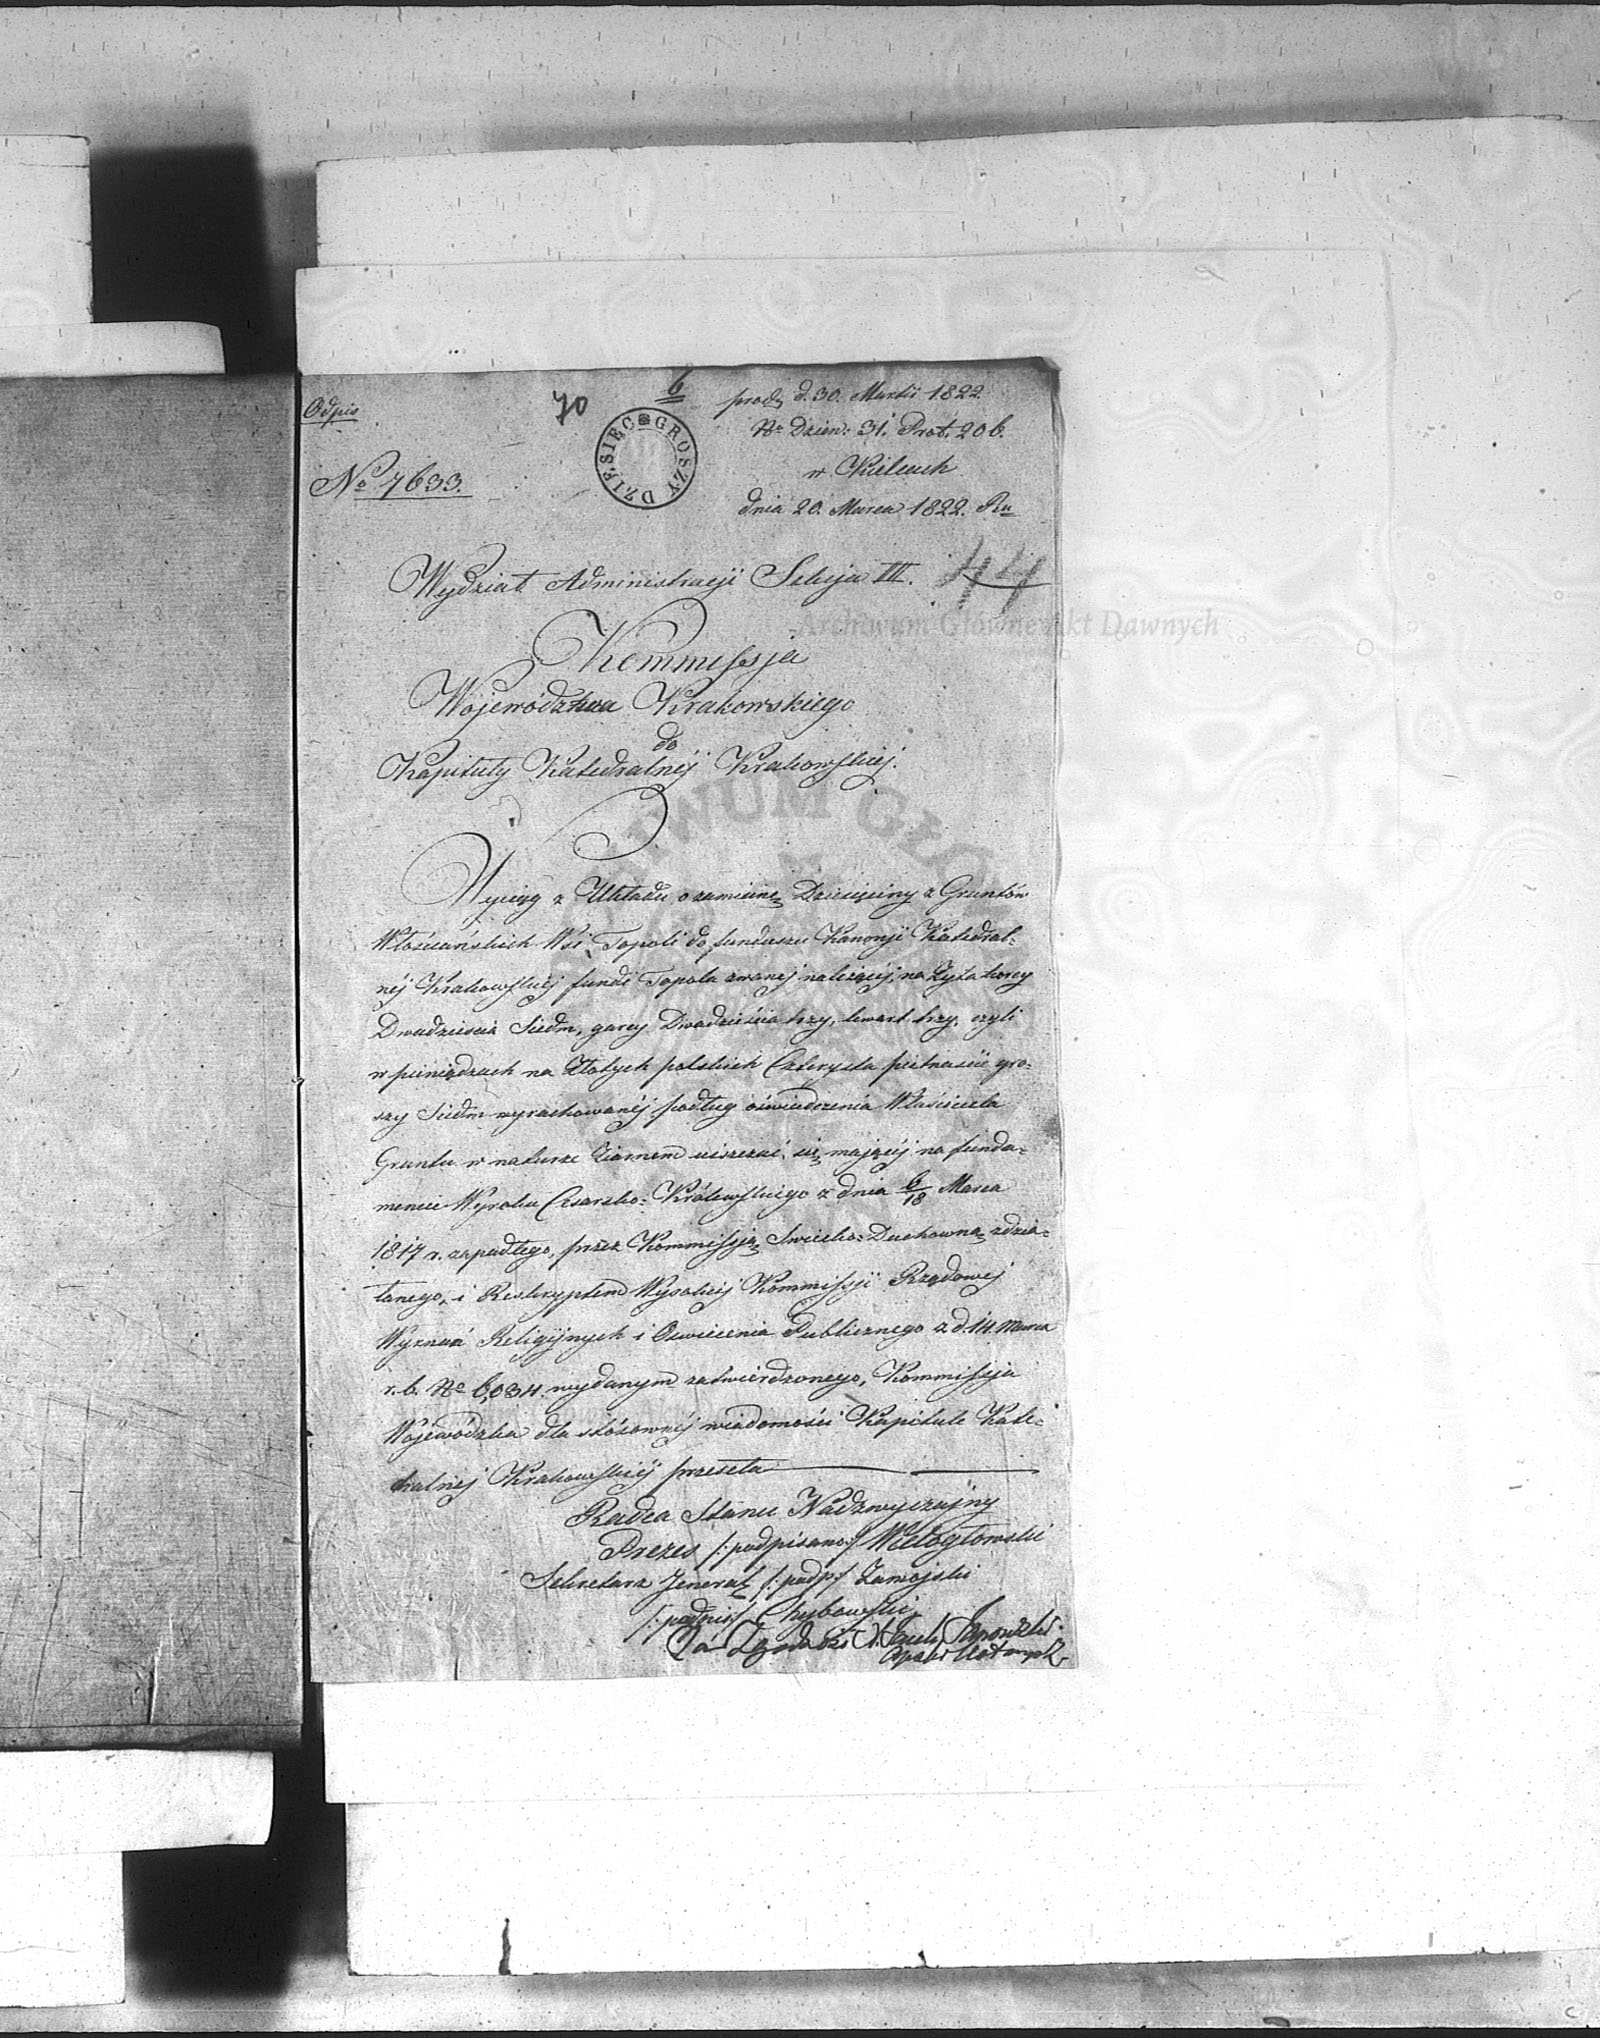 Odpis
70
6
prod. d. 30. Martii 1822.
No Dzien: 31. Prot. 206.
w Kielcach
dnia 20. Marca 1822. Ru
No 7633.
DZIESIĘC GROSZY
44
Wydział Administracji Sekcja III.
Archiwum Główne Akt Dawnych
Kommissja
Województwa Krakowskiego
do
Kapituły Katedralnéj Krakowskiéj.
Wyciąg z Układu o zamianę Dziesięciny z Gruntów
Włościańskich Wsi Topoli do funduszu Kanonji Katedral=
néj Krakowskiéj fundi Topola zwanej należącéj, na Żyta korcy
Dwadzieścia Siedm, garcy Dwadzieścia trzy, kwart trzy, czyli
w pieniądzach na Złotych polskich Czterysta pietnaście gro=
szy Siedm wyrachowanéj podług oświadczenia Właściciela
Gruntu w naturze Ziarnem uiszczać się mającéj na funda=
mencie Wyroku Cesarsko=Królewskiego z dnia 6/18 Marca
1817 r. zapadłego, przez Kommissją Swiecko=Duchowną zdzia=
łanego, i Reskryptem Wysokiej Kommissji Rządowej
Wyznań Religijnych i Oswiecenia Publicznego z d. 14. Marca
r. b. No 6,034. wydanym zatwierdzonego, Kommissja
Województwa dla stósownéj wiadomości Kapitule Kate=
dralnej Krakowskiéj przeseła
Radca Stanu Nadzwyczajny
Prezes /:podpisano:/ Wielogłowski
Sekretarz Jenerał. /:podp:/ Zamojski
/:podpis:/ Chybowski
Za Zgodność